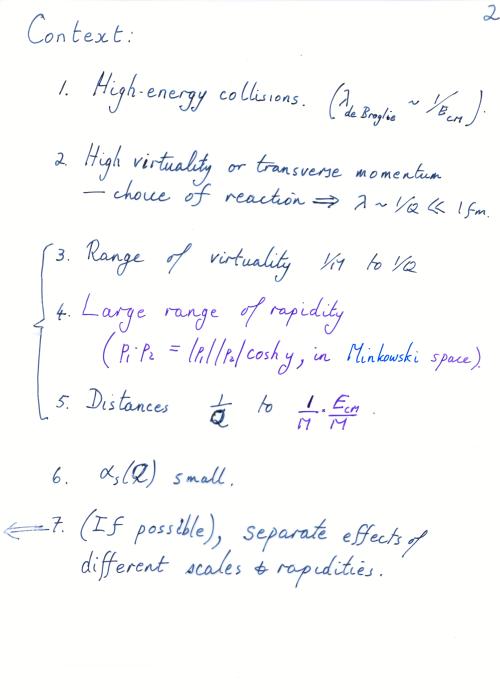 2
Context:
1. High-energy collisions. (λ de Broglie ~ 1/E_CM).
2. High virtuality or transverse momentum
— choice of reaction ⇒ λ ~ 1/Q ≪ 1 fm.
3. Range of virtuality 1/M to 1/Q
4. Large range of rapidity
(P₁·P₂ = |P₁||P₂|cosh y, in Minkowski space).
5. Distances 1/Q to 1/M · E_CM/M.
6. αₛ(Q) small.
⇐ 7. (If possible), separate effects of
different scales & rapidities.